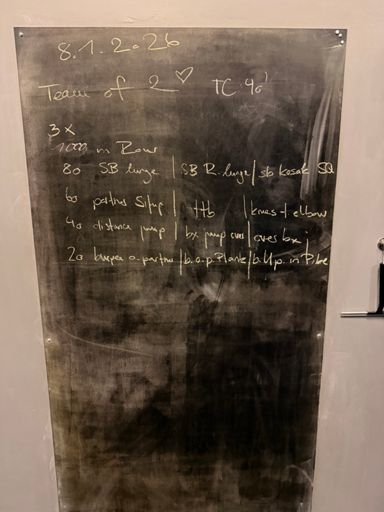 8.1.2026
Team of 2 ♡ TC 40'
3x
1000 m Row
80 SB lunge | SB R. lunge | sb kosak SQ
60 partner Situp | ttb | knees t elbow
40 distance jump | bx jump over | over bx
20 burpee o. partner | b.o.p. Plank | b.